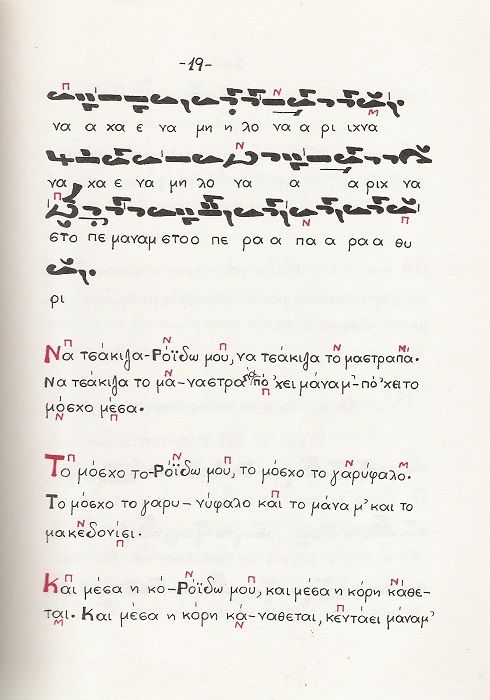 -19-
να α χα ε να μη η λο να α ρι ιχνα
να χα ε να μη λο να α α ριχ να
στο πε μαναμ στοο πε ρα α πα α ρα α θυ
ρι
Να τσάκιζα-Ρόϊδω μου, να τσάκιζα το μαστραπά.
Να τσάκιζα το μα-ναστρα πό 'χει μάναμ'-πό 'χει το
μόσχο μέσα.
Το μόσχο το-Ρόϊδω μου, το μόσχο το γαρύφαλο.
Το μόσχο το γαρυ-νύφαλο και το μάνα μ' και το
μακεδονίσι.
Και μέσα η κό-Ρόϊδω μου, και μέσα η κόρη κάθε-
ται. Και μέσα η κόρη κά-ναθεται, κεντάει μάναμ'